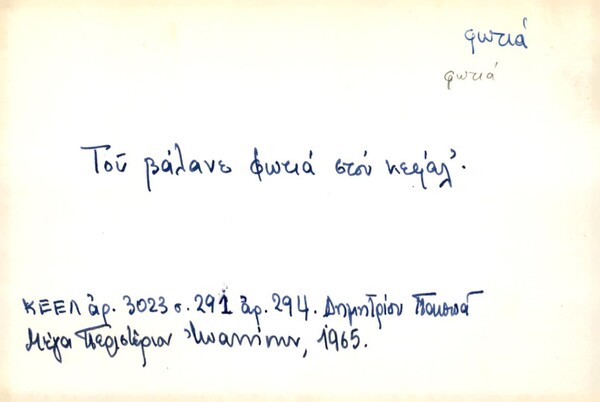 φωτιά
φωτιά
Τοῦ βάλανε φωτιά στού κεφάλ'.
ΚΕΕΛ ἀρ. 3023 σ. 291 ἀρ. 294. Δημητρίου
Μέγα Περιστέριον Ἰωαννίνων, 1965.